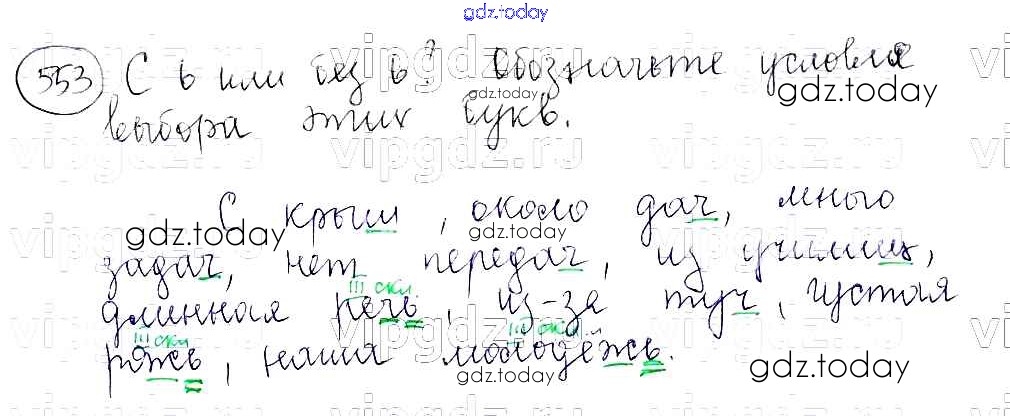 gdz.today
553 С ь или без ь? Обозначьте условия
gdz.today
выбора этих букв.
С крыш, около дач, много
gdz.today
gdz.today
задач, нет передач, из училищ,
III скл
длинная речь, из-за туч, густая
gdz.today
III скл
III скл
рожь, наша молодёжь.
gdz.today
gdz.today